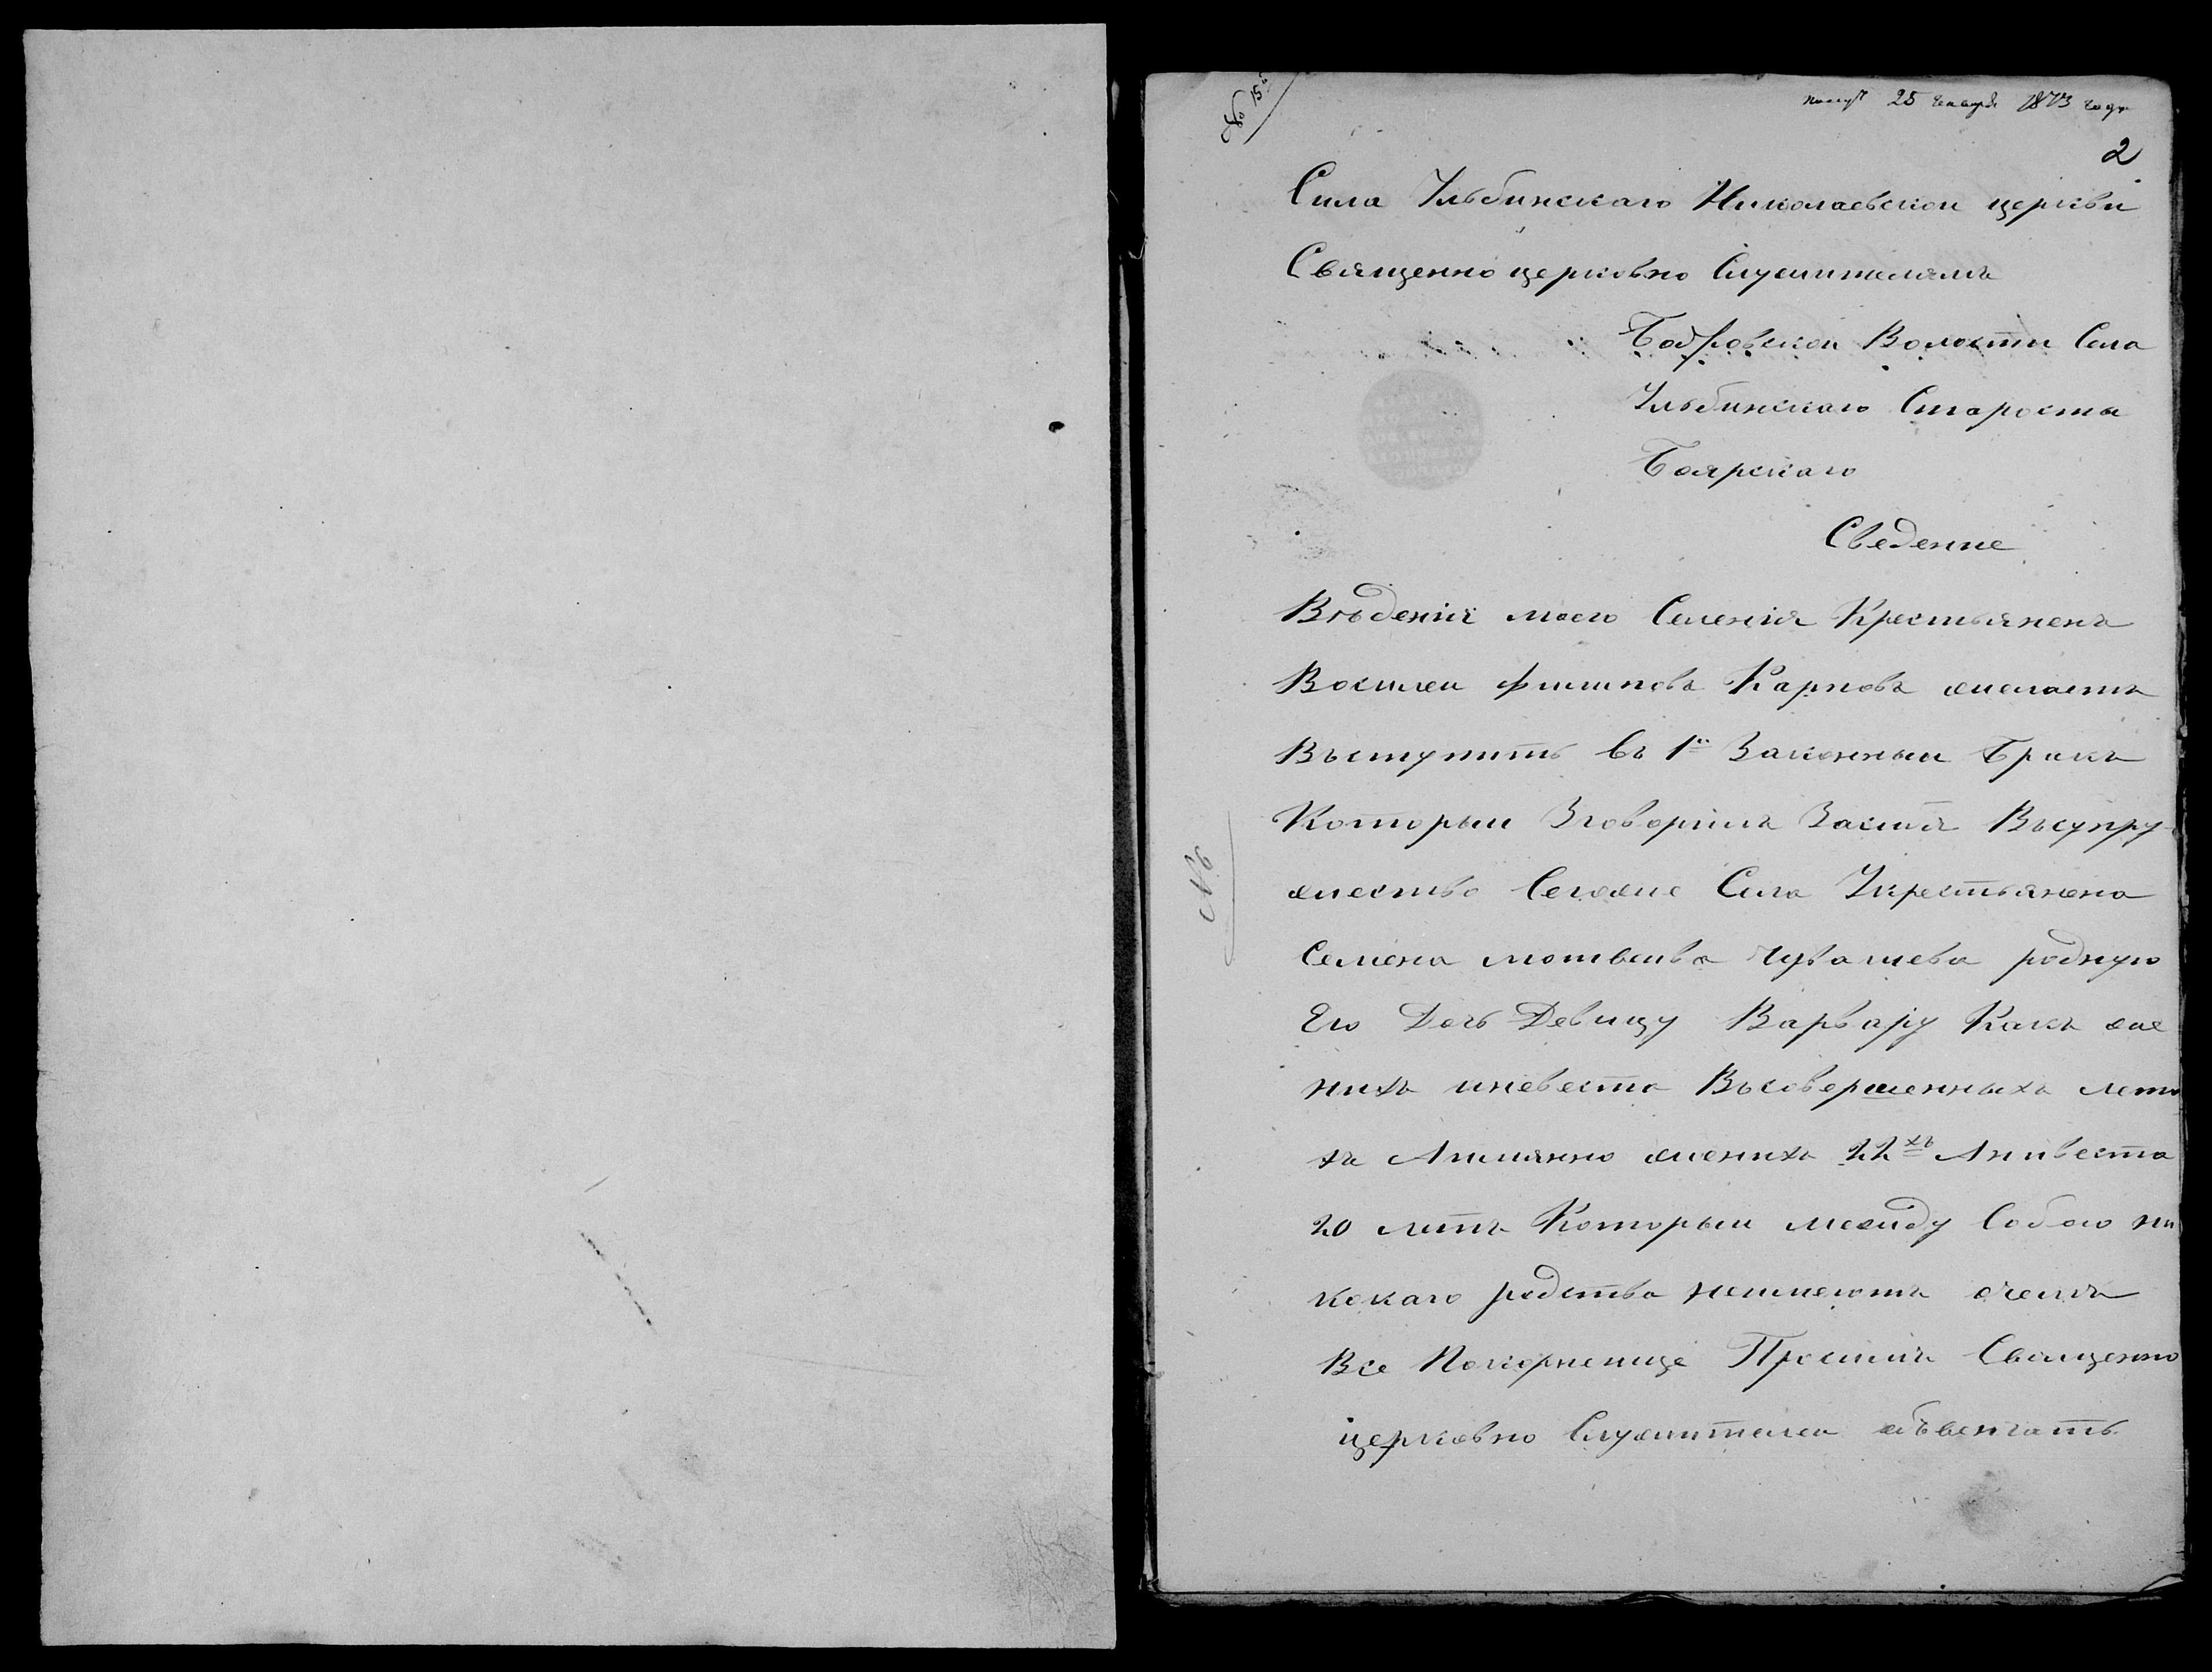 № 15
получ 25 генваря 1873 года
2
Села Ульбинскаго Николаевской церкви
Священно церковно Служителямъ
Бобровской Волости Села
Ульбинскаго Старосты
Боярскаго
Сведение
Вѣдения моего Селения Крестьяненъ
Восилеи филиповъ Карповъ жилаетъ
Въступить въ 1й Законныи Бракъ
Которыи Зговорилъ Засибя Въсупру-
жество Сегоже Села Укрестьянена
Семена мотвеива Чувашева родную
Его Дочь Девицу Варвару Какъ же
нихъ иневеста Въсовершенныхъ лета
хъ Аимянно женихъ 22хъ Анивеста
20 летъ Которыи между Собою ни
кокаго родства неимеютъ очемъ
Все Покорненще Просимъ Священно
церковно Служителеи объвенчать
№ 6